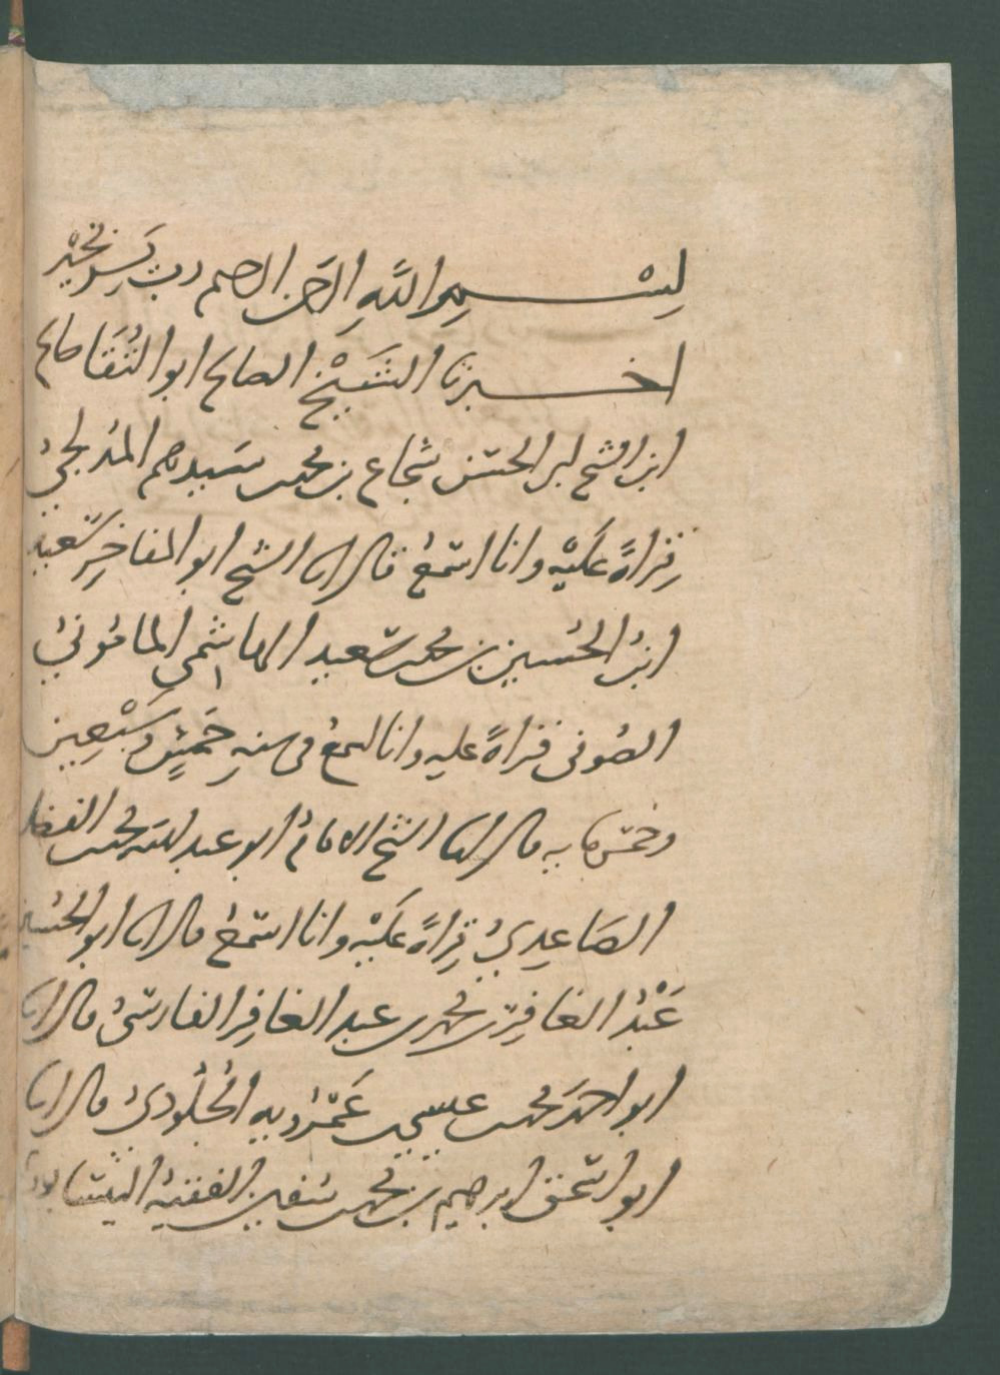 بسم الله الرحمن الرحيم رب يسر بخير
اخبرنا الشيخ الصالح ابو الثقا صالح
ابن الشيخ ابى الحسن شجاع بن محمد سيدهم المدلجى
قراةً عليه وانا اسمع قال انا الشيخ ابو المفاخر سعيد
ابن الحسين بن محمد سعيد الهاشمى المامونى
الصوفى قراةً عليه وانا اسمع فى سنه خمسٍ وسبعين
وخمس مايه قال انا الشيخ الامام ابو عبد الله محمد الفضل
الصاعدى قراةً عليه وانا اسمع قال انا ابو الحسين
عبد الغافر بن محمد بن عبد الغافر الفارسى قال انا
ابو احمد محمد عيسى عمرويه الجلودى قال انا
ابو اسحق ابرهيم بن محمد سفين الفقيه النيسابورى